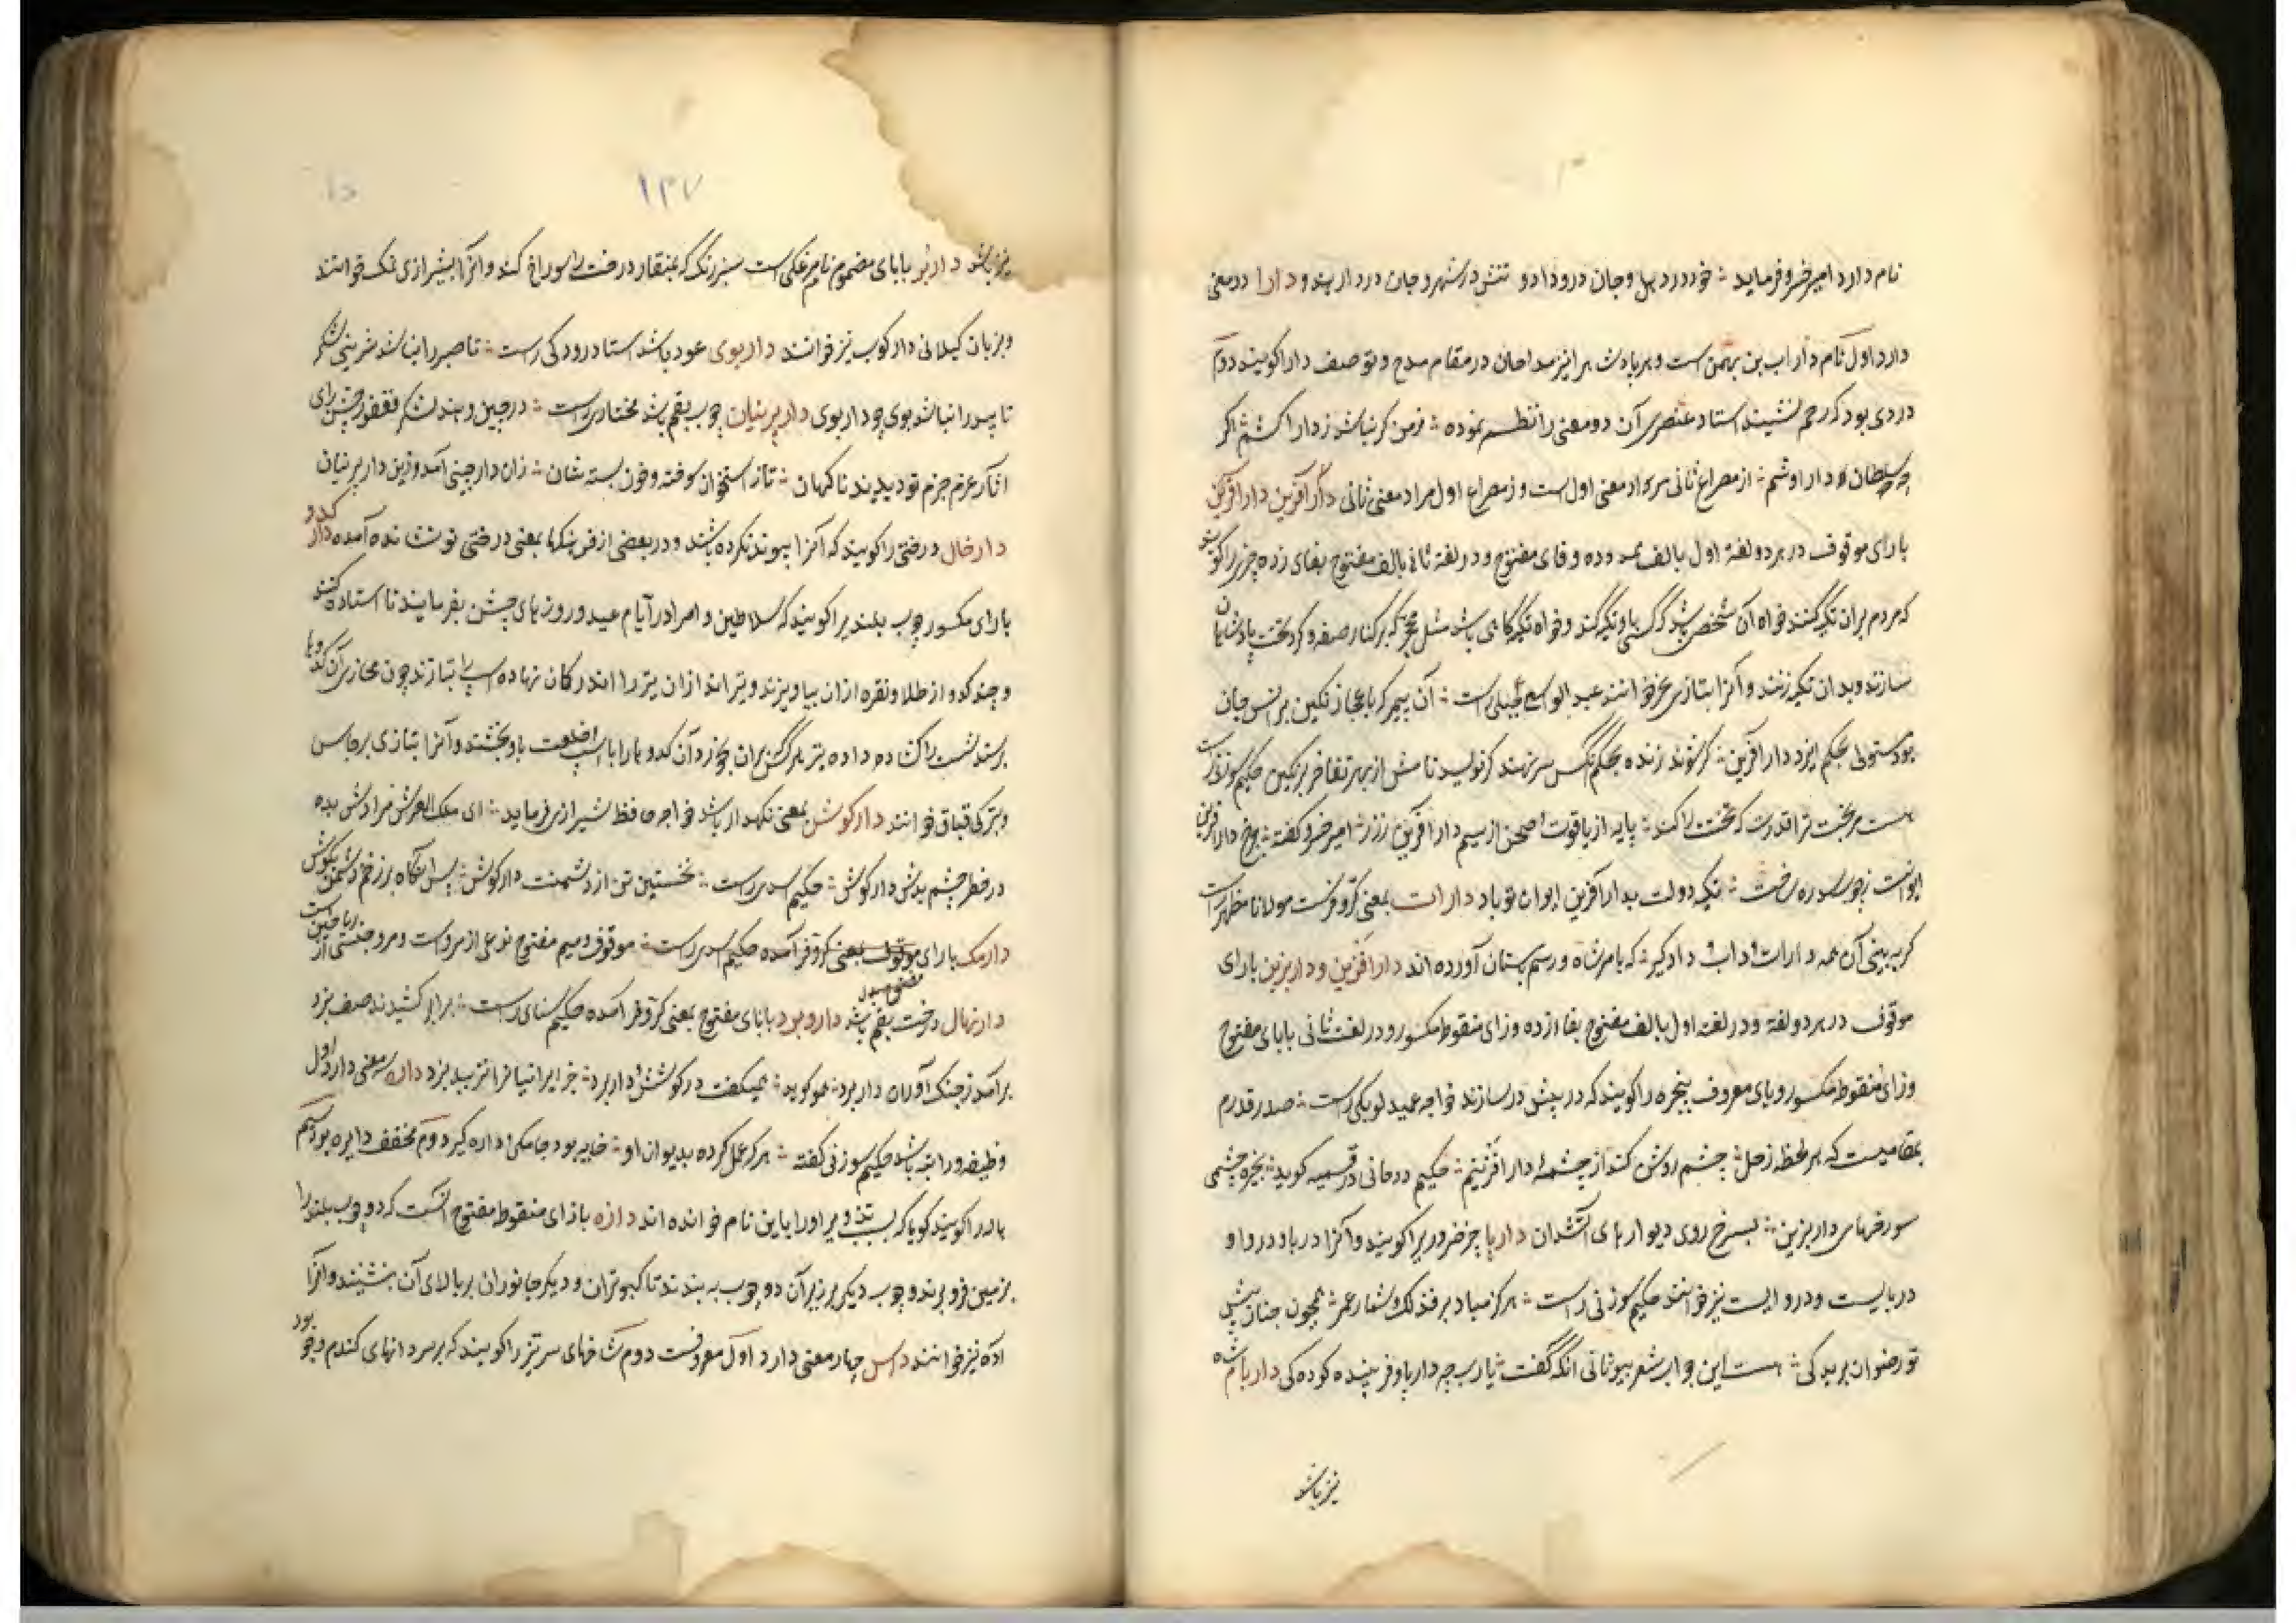 نام دارد امیرخسرو فرماید خود در دهلی و جان در و دادو تنش در شهر و جان در دار هند و دارا دو معنی
دارد اول نام داراب بن بهمن است و هر پادشاه را نیز مداحان در مقام مدح و توصیف دارا گویند دوم
دردی بود که در خم نشیند استاد عنصری آن دو معنی را نظم نموده ز من گر نباشد ز دارا کشم اگر
چه سلطان دارا وشم از مصراع ثانی مراد معنی اول است و ز مصراع اول مراد معنی ثانی دارآفرین دارافرین
با رای موقوف در هر دو لغة اول بالف ممدوده و فای مفتوح و در لغة ثانی بالف مفتوح بفای زده چیزی را گویند
که مردم بران تکیه کنند خواه آن شخصی باشد که کسی باو تکیه کند و خواه تکیه گاهی باشد مثل محجر که بر کنار صفه و گرد تخت پادشاهان
سازند و بدان تکیه زنند و آنرا بتازی خوانند عبدالواسع جبلی راست آن پیمبر که باعجاز نگین بر انس و جان
بود مستولی بحکم ایزد دارآفرین
هست مر بخت ترا قدرت که تختت را کند پایه از یاقوت و صحن از سیم و دارآفرین ز زر امیرخسرو گفته چرخ دارافرین
ایوانت تکیه دولت بدارآفرین ایوان تو باد دارات بمعنی کر و فر است مولانا مظهر راست
گر به بینی آن همه دارات و داب و دار و گیر که بامر شاه و رسم بستان آورده اند دارافزین و داربزین با رای
موقوف در هر دو لغة و در لغة اول بالف مفتوح بفا زده و زای منقوط مکسور و در لغت ثانی با بای مفتوح
وزای منقوط مکسور و یای معروف پنجره را گویند که در پیش در سازند خواجه عمید لوبکی راست صدر قدرم
بمقامیست که هر لحظه زحل چشم روشن کند از چشمهٔ دارافزینم حکیم روحانی در قسمیه گوید بخیره چشمی
سوراخهای داربزین بسرخ روی دیوارهای آتشدان داربا چیز ضروری را گویند و آنرا دربا و دروا و
دربایست و دروایست نیز خوانند حکیم سوزنی راست هرگز مباد بر فذلک شمار عمر همچون جنان پیش
تو رضوان برید کی هست این جواب شعر بیوثاتی انکه گفت یارب چه داربا و فریبنده کودکی داربام شاه
نیز باشد
نیز باشد داربر با بای مضموم نام مرغکی است سبز رنگ که بمنقار درخت را سوراخ کند و آنرا بشیرازی نک خوانند
و بزبان گیلانی دارکوب نیز خوانند داربوی عود باشد استاد رودکی راست تا صبر را نباشد شیرینی شکر
تا بید را نباشد بوی چو داربوی دارپرنیان چوب بقم باشد مختاری راست در چین و هند لشکر فغفور و جیش رای
آثار عزم جزم تو دیدند ناگهان تا ز استخوان سوخته و خون بسته شان زان دارچینی آمد و زین دارپرنیان
دارخال درختی را گویند که آنرا پیوند نکرده باشند و در بعضی از فرهنگها بمعنی درختی نو نشانده آمده دار کدو
با رای مکسور چوب بلندی را گویند که سلاطین و امرا در ایام عید و روزهای جشن بفرمایند تا استاده کنند
و چند کدو از طلا و نقره ازان بیاویزند و تیراندازان تیر را اندر کمان نهاده اسب را بتازند چون محاذی آن کدوها
برسند شست را گشاده داده تیر هر کس بران بخورد آن کدو را با اسپ و خلعت باو بخشند و آنرا بتازی برجاس
و بترکی قباق خوانند دارگوش بمعنی نگهدار باشد خواجه حافظ شیرازی فرماید ای ملک العرش مرادش بده
در خطر چشم بدش دارگوش حکیم اسدی راست نخستین تن از دشمنت دارگوش پس آنگاه بر زخم دشمن بکوش
دارمک با رای موقوف بمعنی کر و فر آمده حکیم اسدی راست موقوف و میم مفتوح نوعی از مرو است و مرو جنسی از ریاحین است
دارنهال درخت بقم باشد داروبرد با بای مفتوح بمعنی کر و فر آمده حکیم سنائی راست برابر کشیدند صف نبرد
برآمد ز جنگ آوران داربرد همو گوید همیگفت در کوشش و داربرد جز ایرانیان را نزیبد نبرد داره سه معنی دارد اول
وظیفه و راتبه باشد حکیم سوزنی گفته هر که عمل کرده بدیوان او خایبه بود جامگی و داره گیر دوم مخفف دایره بود سیم
هاله را گویند گویا که بسبب تدویر او را باین نام خوانده اند دازه با زای منقوط مفتوح آنست که دو چوب بلند را
بزمین فرو برند و چوب دیگر بر زبر آن دو چوب به بندند تا کبوتران و دیگر جانوران بر بالای آن بنشینند و آنرا
اده نیز خوانند داس چهار معنی دارد اول معروفست دوم شاخهای سر تیز را گویند که بر سر دانهای گندم و جو بود